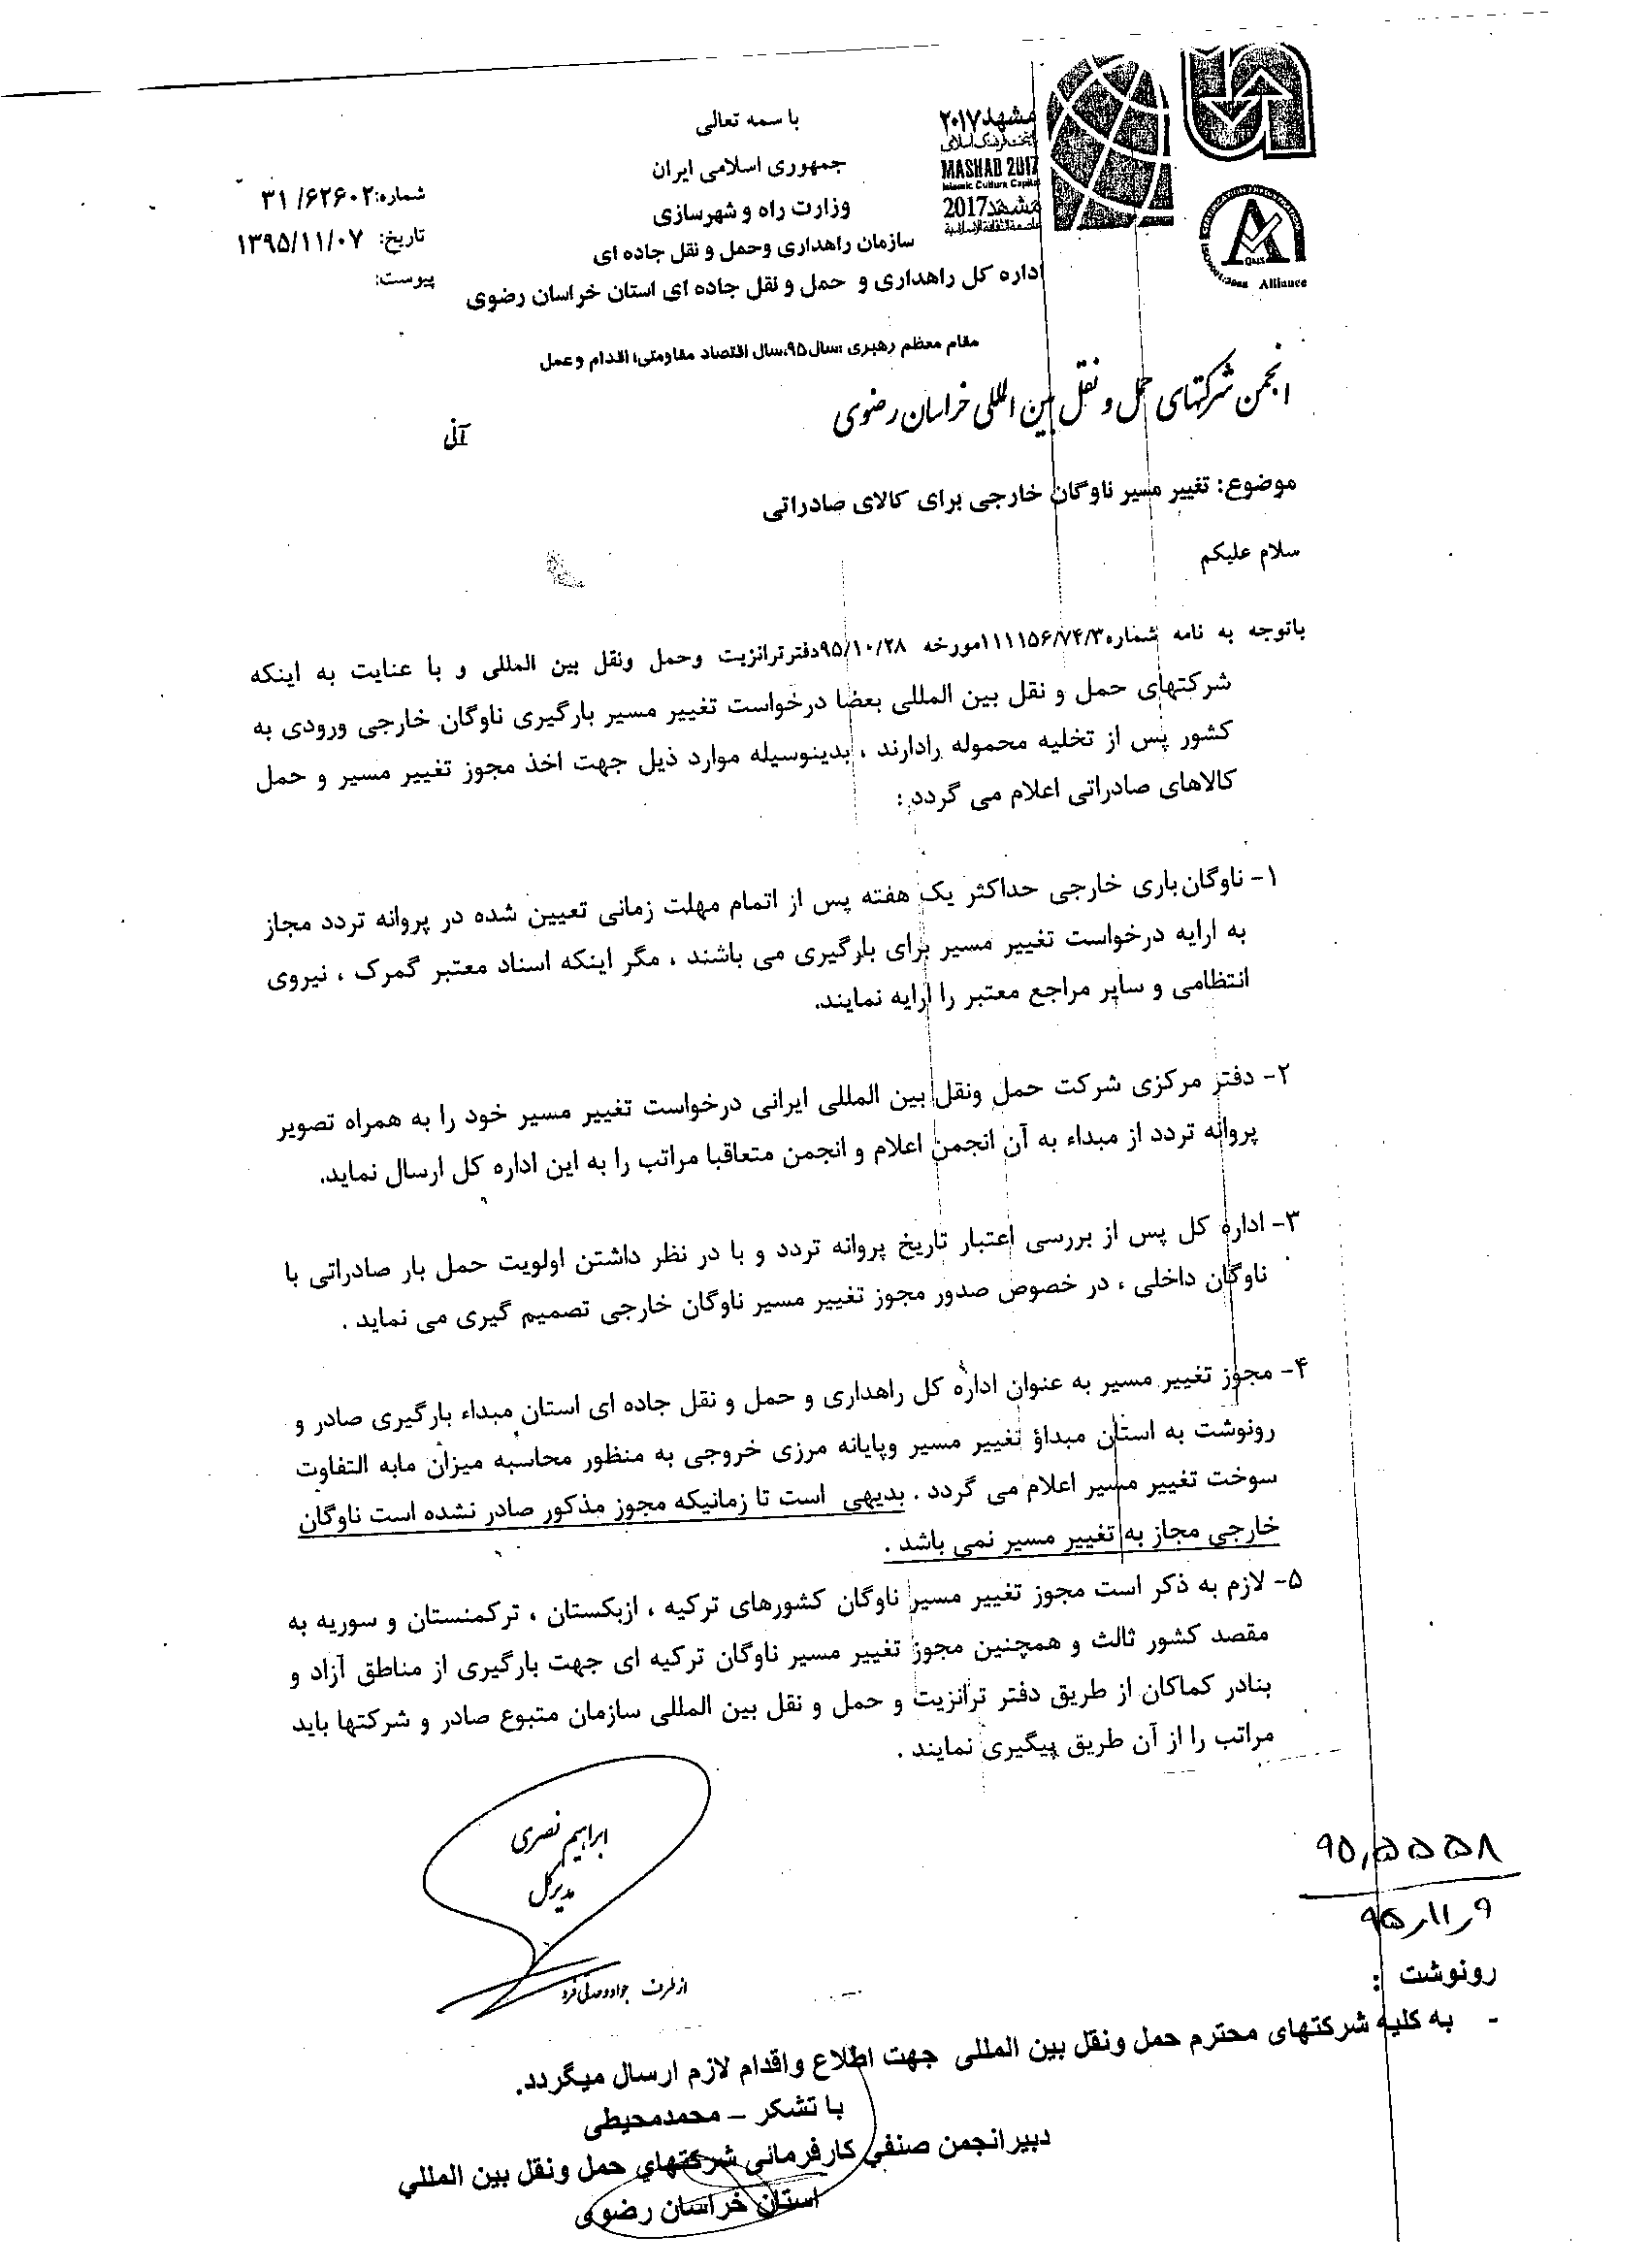 با سمه تعالی
جمهوری اسلامی ایران
وزارت راه و شهرسازی
سازمان راهداری وحمل و نقل جاده ای
اداره کل راهداری و حمل و نقل جاده ای استان خراسان رضوی
مشهد۲۰۱۷
MASHAD 2017
Islamic Culture Capital
مشهد2017
عاصمة الثقافة الإسلامية
QMS
Alliance
شماره:۳۱/۶۲۶۰۲
تاریخ: ۱۳۹۵/۱۱/۰۷
پیوست:
مقام معظم رهبری :سال۹۵،سال اقتصاد مقاومتی؛ اقدام وعمل
انجمن شرکتهای حمل و نقل بین المللی خراسان رضوی
آنی
موضوع: تغییر مسیر ناوگان خارجی برای کالای صادراتی
سلام علیکم
باتوجه به نامه شماره۱۱۱۱۵۶/۷۴/۳مورخه ۹۵/۱۰/۲۸دفترترانزیت وحمل ونقل بین المللی و با عنایت به اینکه
شرکتهای حمل و نقل بین المللی بعضا درخواست تغییر مسیر بارگیری ناوگان خارجی ورودی به
کشور پس از تخلیه محموله رادارند ، بدینوسیله موارد ذیل جهت اخذ مجوز تغییر مسیر و حمل
کالاهای صادراتی اعلام می گردد :
۱- ناوگان باری خارجی حداکثر یک هفته پس از اتمام مهلت زمانی تعیین شده در پروانه تردد مجاز
به ارایه درخواست تغییر مسیر برای بارگیری می باشند ، مگر اینکه اسناد معتبر گمرک ، نیروی
انتظامی و سایر مراجع معتبر را ارایه نمایند.
۲- دفتر مرکزی شرکت حمل ونقل بین المللی ایرانی درخواست تغییر مسیر خود را به همراه تصویر
پروانه تردد از مبداء به آن انجمن اعلام و انجمن متعاقبا مراتب را به این اداره کل ارسال نماید.
۳- اداره کل پس از بررسی اعتبار تاریخ پروانه تردد و با در نظر داشتن اولویت حمل بار صادراتی با
ناوگان داخلی ، در خصوص صدور مجوز تغییر مسیر ناوگان خارجی تصمیم گیری می نماید .
۴- مجوز تغییر مسیر به عنوان اداره کل راهداری و حمل و نقل جاده ای استان مبداء بارگیری صادر و
رونوشت به استان مبداؤ تغییر مسیر وپایانه مرزی خروجی به منظور محاسبه میزان مابه التفاوت
سوخت تغییر مسیر اعلام می گردد . بدیهی است تا زمانیکه مجوز مذکور صادر نشده است ناوگان
خارجی مجاز به تغییر مسیر نمی باشد .
۵- لازم به ذکر است مجوز تغییر مسیر ناوگان کشورهای ترکیه ، ازبکستان ، ترکمنستان و سوریه به
مقصد کشور ثالث و همچنین مجوز تغییر مسیر ناوگان ترکیه ای جهت بارگیری از مناطق آزاد و
بنادر کماکان از طریق دفتر ترانزیت و حمل و نقل بین المللی سازمان متبوع صادر و شرکتها باید
مراتب را از آن طریق پیگیری نمایند .
ابراهیم نصری
مدیرکل
از طرف جواد وصدتی فرد
۹۵٫۵۵۵۸
۹۵٫۱۱٫۹
رونوشت :
- به کلیه شرکتهای محترم حمل ونقل بین المللی جهت اطلاع واقدام لازم ارسال میگردد.
با تشکر – محمدمحیطی
دبیرانجمن صنفي کارفرمائی شرکتهاي حمل ونقل بین المللي
استان خراسان رضوی